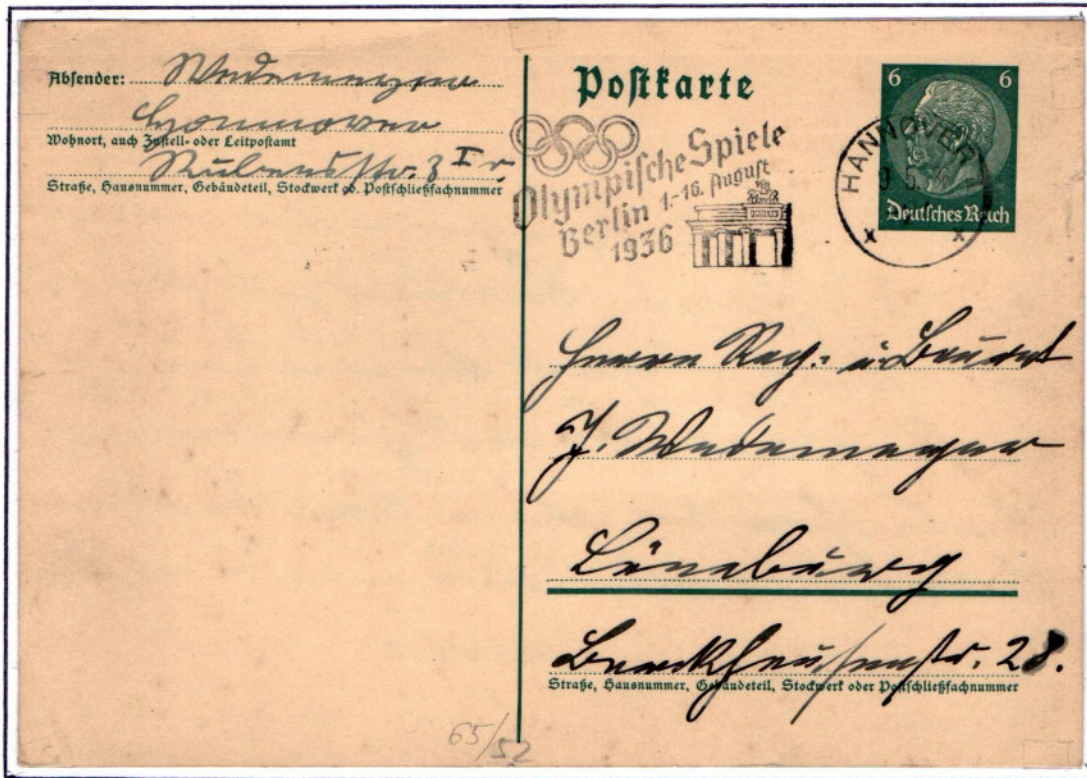 Absender: Wedemeyer
Hannover
Wohnort, auch Zustell- oder Leitpostamt
Rubensstr. 3 I r
Straße, Hausnummer, Gebäudeteil, Stockwerk od. Postschließfachnummer
Postkarte
Olympische Spiele
Berlin 1.-16. August
1936
6 6
HANNOVER
Deutsches Reich
x x
Herrn Reg.- u. Baurat
J. Wedemeyer
Lüneburg
Barckhausenstr. 28.
Straße, Hausnummer, Gebäudeteil, Stockwerk oder Postschließfachnummer
65/52